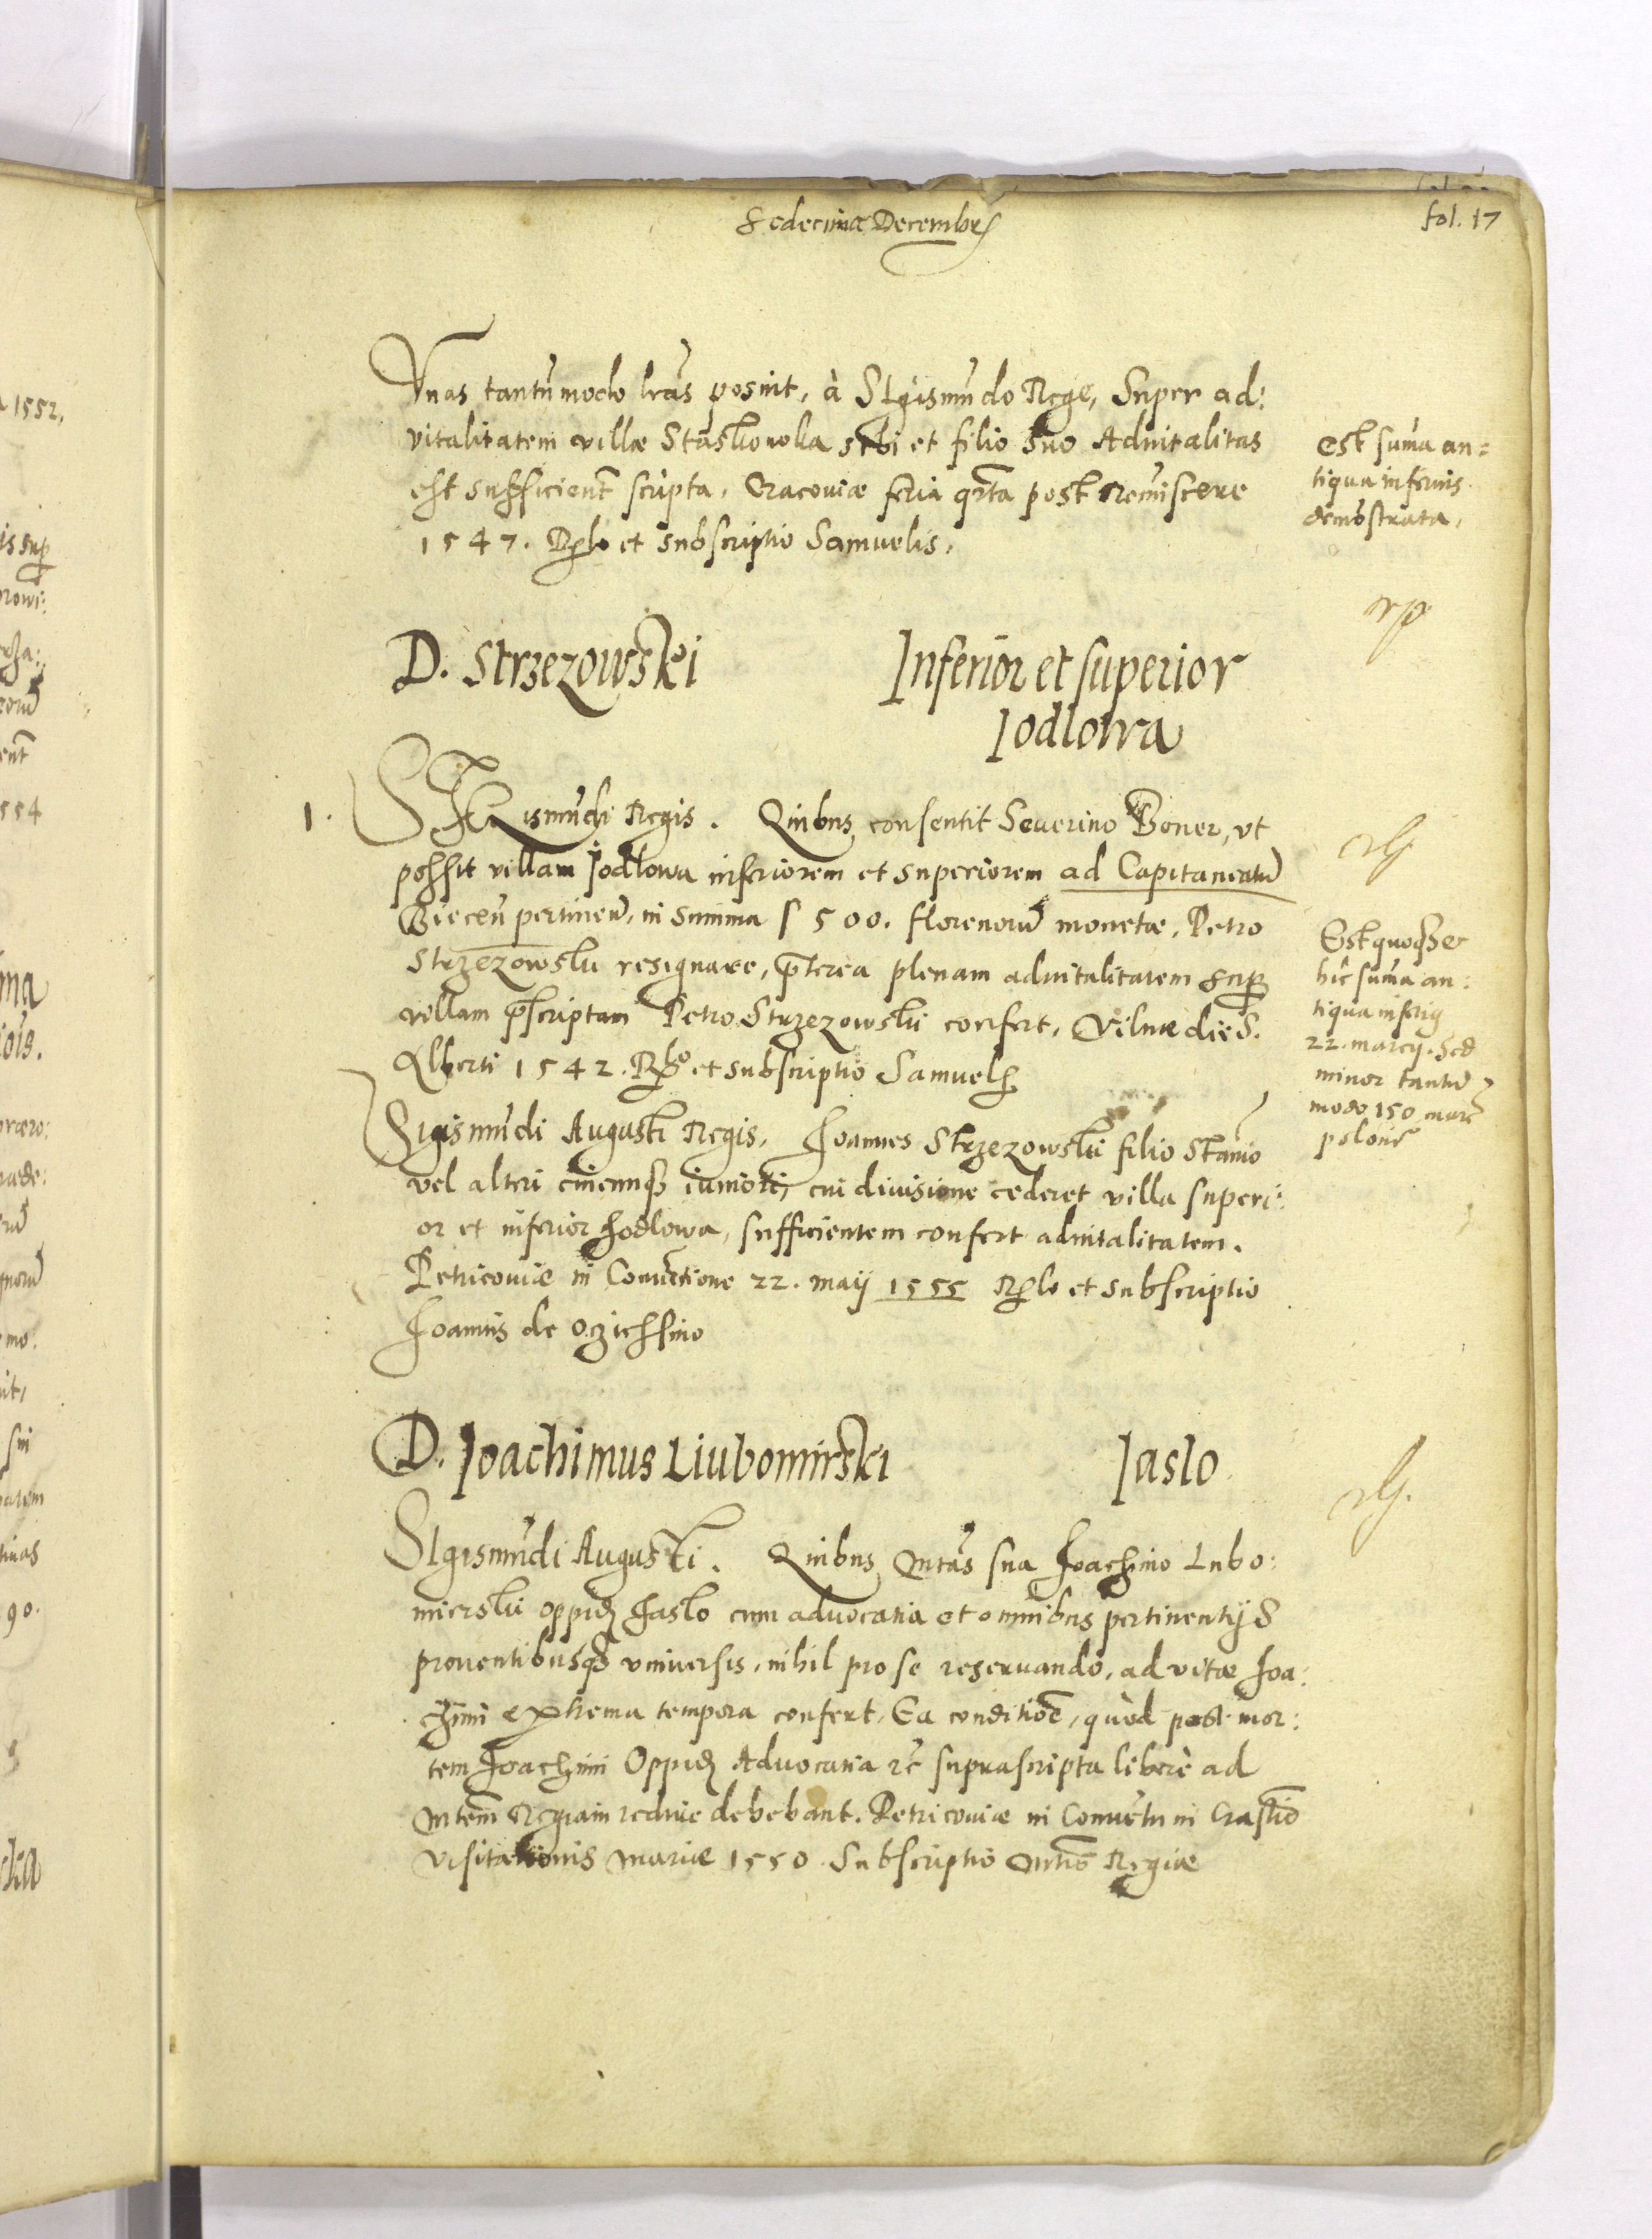 Sedecima Decembris
fol. 17
Vnas tantūmodo lrās posuit, à Sigismūdo Rege, Super ad:
vitalitatem villæ Staskowka sibi et filio suo Aduitalitas
est sufficient scripta, Cracouiæ feria qrta post Reminiscere
1547. Rlo et subscriptio Samuelis,
est suma an=
tiqua inferius
demōstrata,
D. Strzezowski
Inferior et superior
Iodlowa
1. SIGismūdi Regis. Quibus consentit Seuerino Boner, vt
possit villam Jodlowa inferiorem et superiorem ad Capitaneatū
Biecen pertinen, in summa f 500. florenorū monetæ, Petro
Strzezowski resignare, prterea plenam aduitalitatem sup
villam prscriptam Petro Strzezowski confert, Vilnæ die S.
Alberti 1542. Rlo et subscriptio Samuelis
Est quoqȝ et
hic suma an:
tiqua inferius
22. marcij. Sed
minor tantū
modo 150 marc
polonic
Sigismūdi Augusti Regis, Joannes Strzezowski filio Stanio
vel alteri cuicunqȝ iuniori, cui diuisione cederet villa superi:
or et inferior Jodlowa, sufficientem confert aduitalitatem.
Petricouiæ in Conuentione 22. maij 1555 Rlo et subscriptio
Joannis de Oczieszino
D. Ioachimus Liubomirski
Iaslo
SIgismūdi Augusti. Quibus Mtas sua Joachimo Lubo:
mierski oppidū Jaslo cum aduocatia et omnibus pertinentijs
prouentibusqȝ vniuersis, nihil pro se reseruando, ad vitæ Joa:
chimi extrema tempora confert, Ea conditiōe, quòd post mor:
tem Joachimi Oppidū Aduocatia &c suprascripta liberè ad
Mtem Regiam rediue debebant. Petricouiæ in Conuētu in Crastio
Visitationis Mariæ 1550. Subscriptio Mtis Regiæ